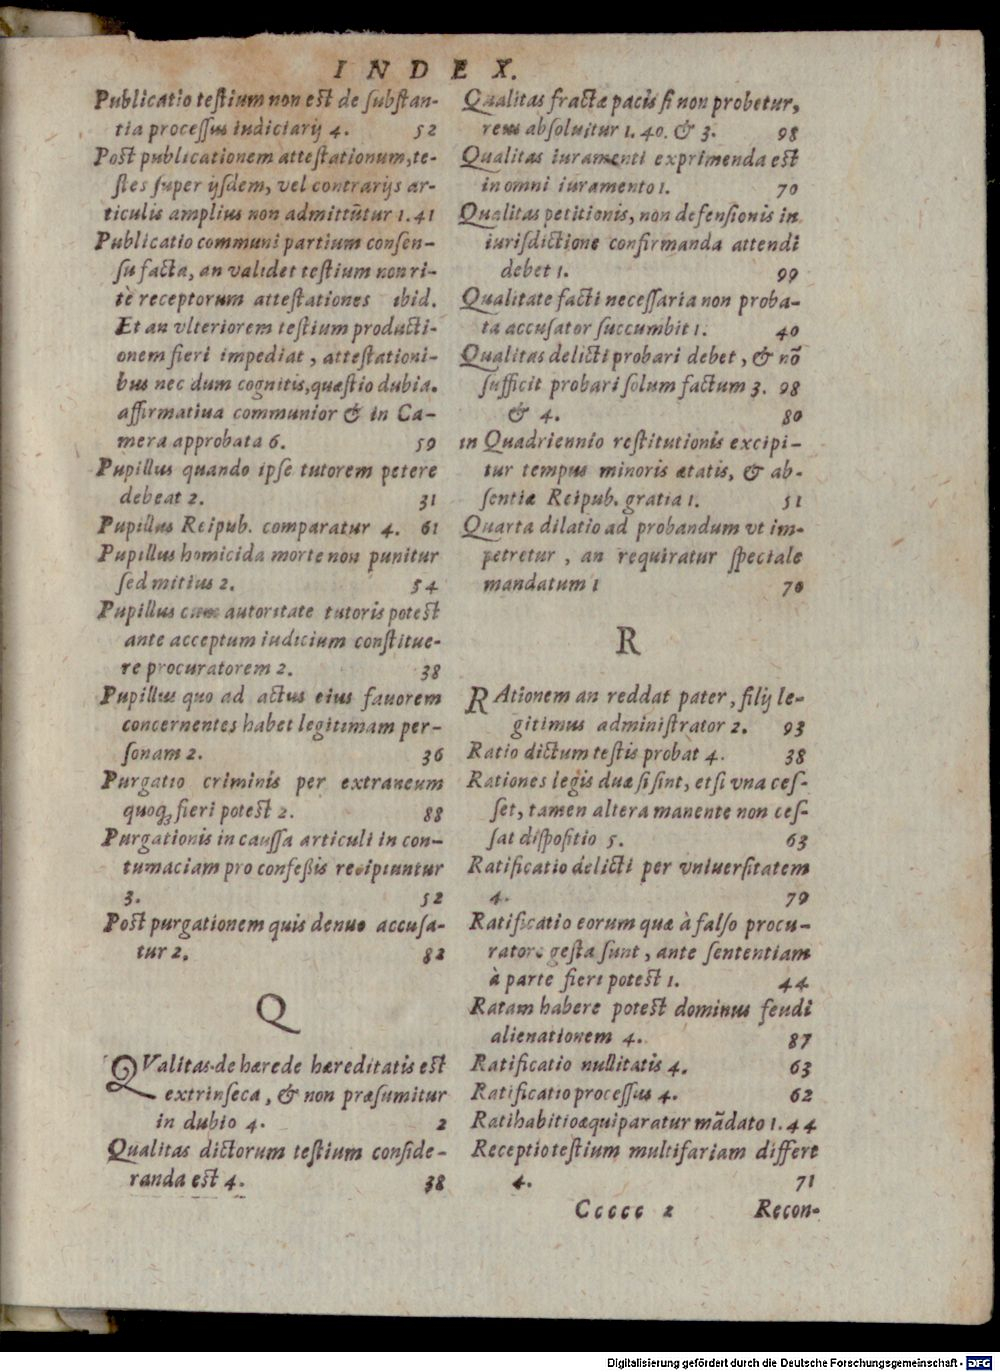 INDEX.
Publicatio teſtium non eſt de ſubſtan-
tia proceſſus iudiciarij 4. 52
Poſt publicationem atteſtationum, te-
ſtes ſuper ijſdem, vel contrarijs ar-
ticulis amplius non admittūtur 1. 41
Publicatio communi partium conſen-
ſu facta, an validet teſtium non ri-
tè receptorum atteſtationes ibid.
Et an vlteriorem teſtium producti-
onem fieri impediat, atteſtationi-
bus nec dum cognitis, quæſtio dubia.
affirmatiua communior & in Ca-
mera approbata 6. 59
Pupillus quando ipſe tutorem petere
debeat 2. 31
Pupillus Reipub. comparatur 4. 61
Pupillus homicida morte non punitur
ſed mitius 2. 54
Pupillus cum autoritate tutoris poteſt
ante acceptum iudicium conſtitue-
re procuratorem 2. 38
Pupillus quo ad actus eius fauorem
concernentes habet legitimam per-
ſonam 2. 36
Purgatio criminis per extraneum
quoq; fieri poteſt 2. 88
Purgationis in cauſſa articuli in con-
tumaciam pro confeßis recipiuntur
3. 52
Poſt purgationem quis denuo accuſa-
tur 2. 82
Q
QValitas de hærede hæreditatis eſt
extrinſeca, & non præſumitur
in dubio 4. 2
Qualitas dictorum teſtium conſide-
randa eſt 4. 38
Qualitas fractæ pacis ſi non probetur,
reus abſoluitur 1. 40. & 3. 98
Qualitas iuramenti exprimenda eſt
in omni iuramento 1. 70
Qualitas petitionis, non defenſionis in
iurisdictione confirmanda attendi
debet 1. 99
Qualitate facti neceſſaria non proba-
ta accuſator ſuccumbit 1. 40
Qualitas delicti probari debet, & nō
ſufficit probari ſolum factum 3. 98
& 4. 80
in Quadriennio reſtitutionis excipi-
tur tempus minoris ætatis, & ab-
ſentiæ Reipub. gratia 1. 51
Quarta dilatio ad probandum vt im-
petretur, an requiratur ſpectale
mandatum 1 70
R
RAtionem an reddat pater, filij le-
gitimus adminiſtrator 2. 93
Ratio dictum teſtis probat 4. 38
Rationes legis duæ ſi ſint, etſi vna ceſ-
ſet, tamen altera manente non ceſ-
ſat diſpoſitio 5. 63
Ratificatio delicti per vniuerſitatem
4. 79
Ratificatio eorum quæ à falſo procu-
ratore geſta ſunt, ante ſententiam
à parte fieri poteſt 1. 44
Ratam habere poteſt dominus feudi
alienationem 4. 87
Ratificatio nullitatis 4. 63
Ratificatio proceſſus 4. 62
Ratihabitio æquiparatur mādato 1. 44
Receptio teſtium multifariam differt
4. 71
Ccccc 2 Recon-
Digitalisierung gefördert durch die Deutsche Forschungsgemeinschaft - DFG